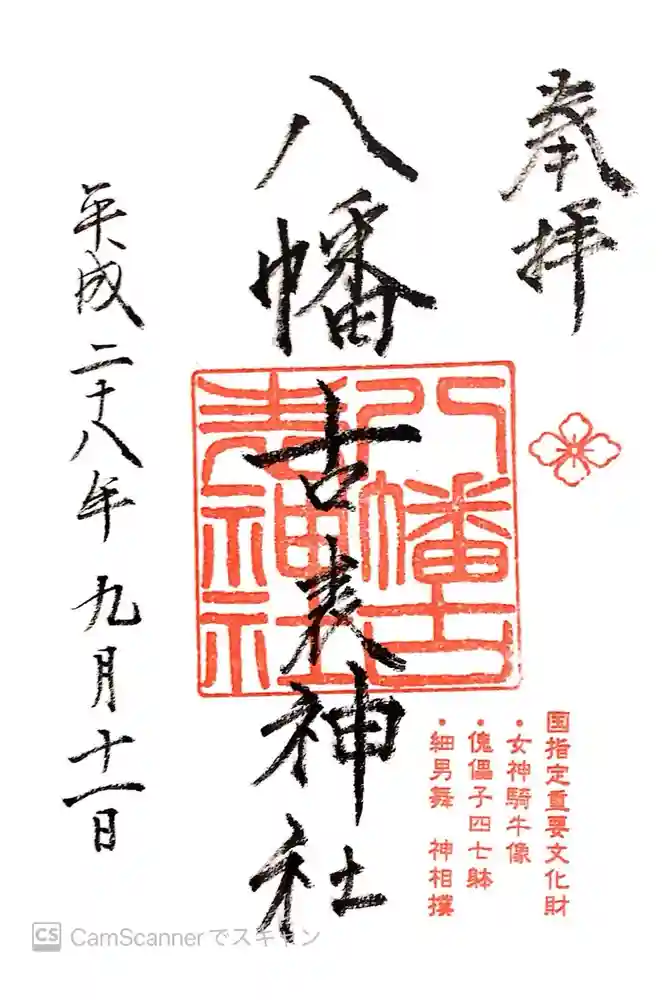 奉拝
八幡古表神社
八幡古表神社
国指定重要文化財
・女神騎牛像
・傀儡子四七躰
・細男舞 神相撲
平成二十八年九月十一日
CS CamScannerでスキャン